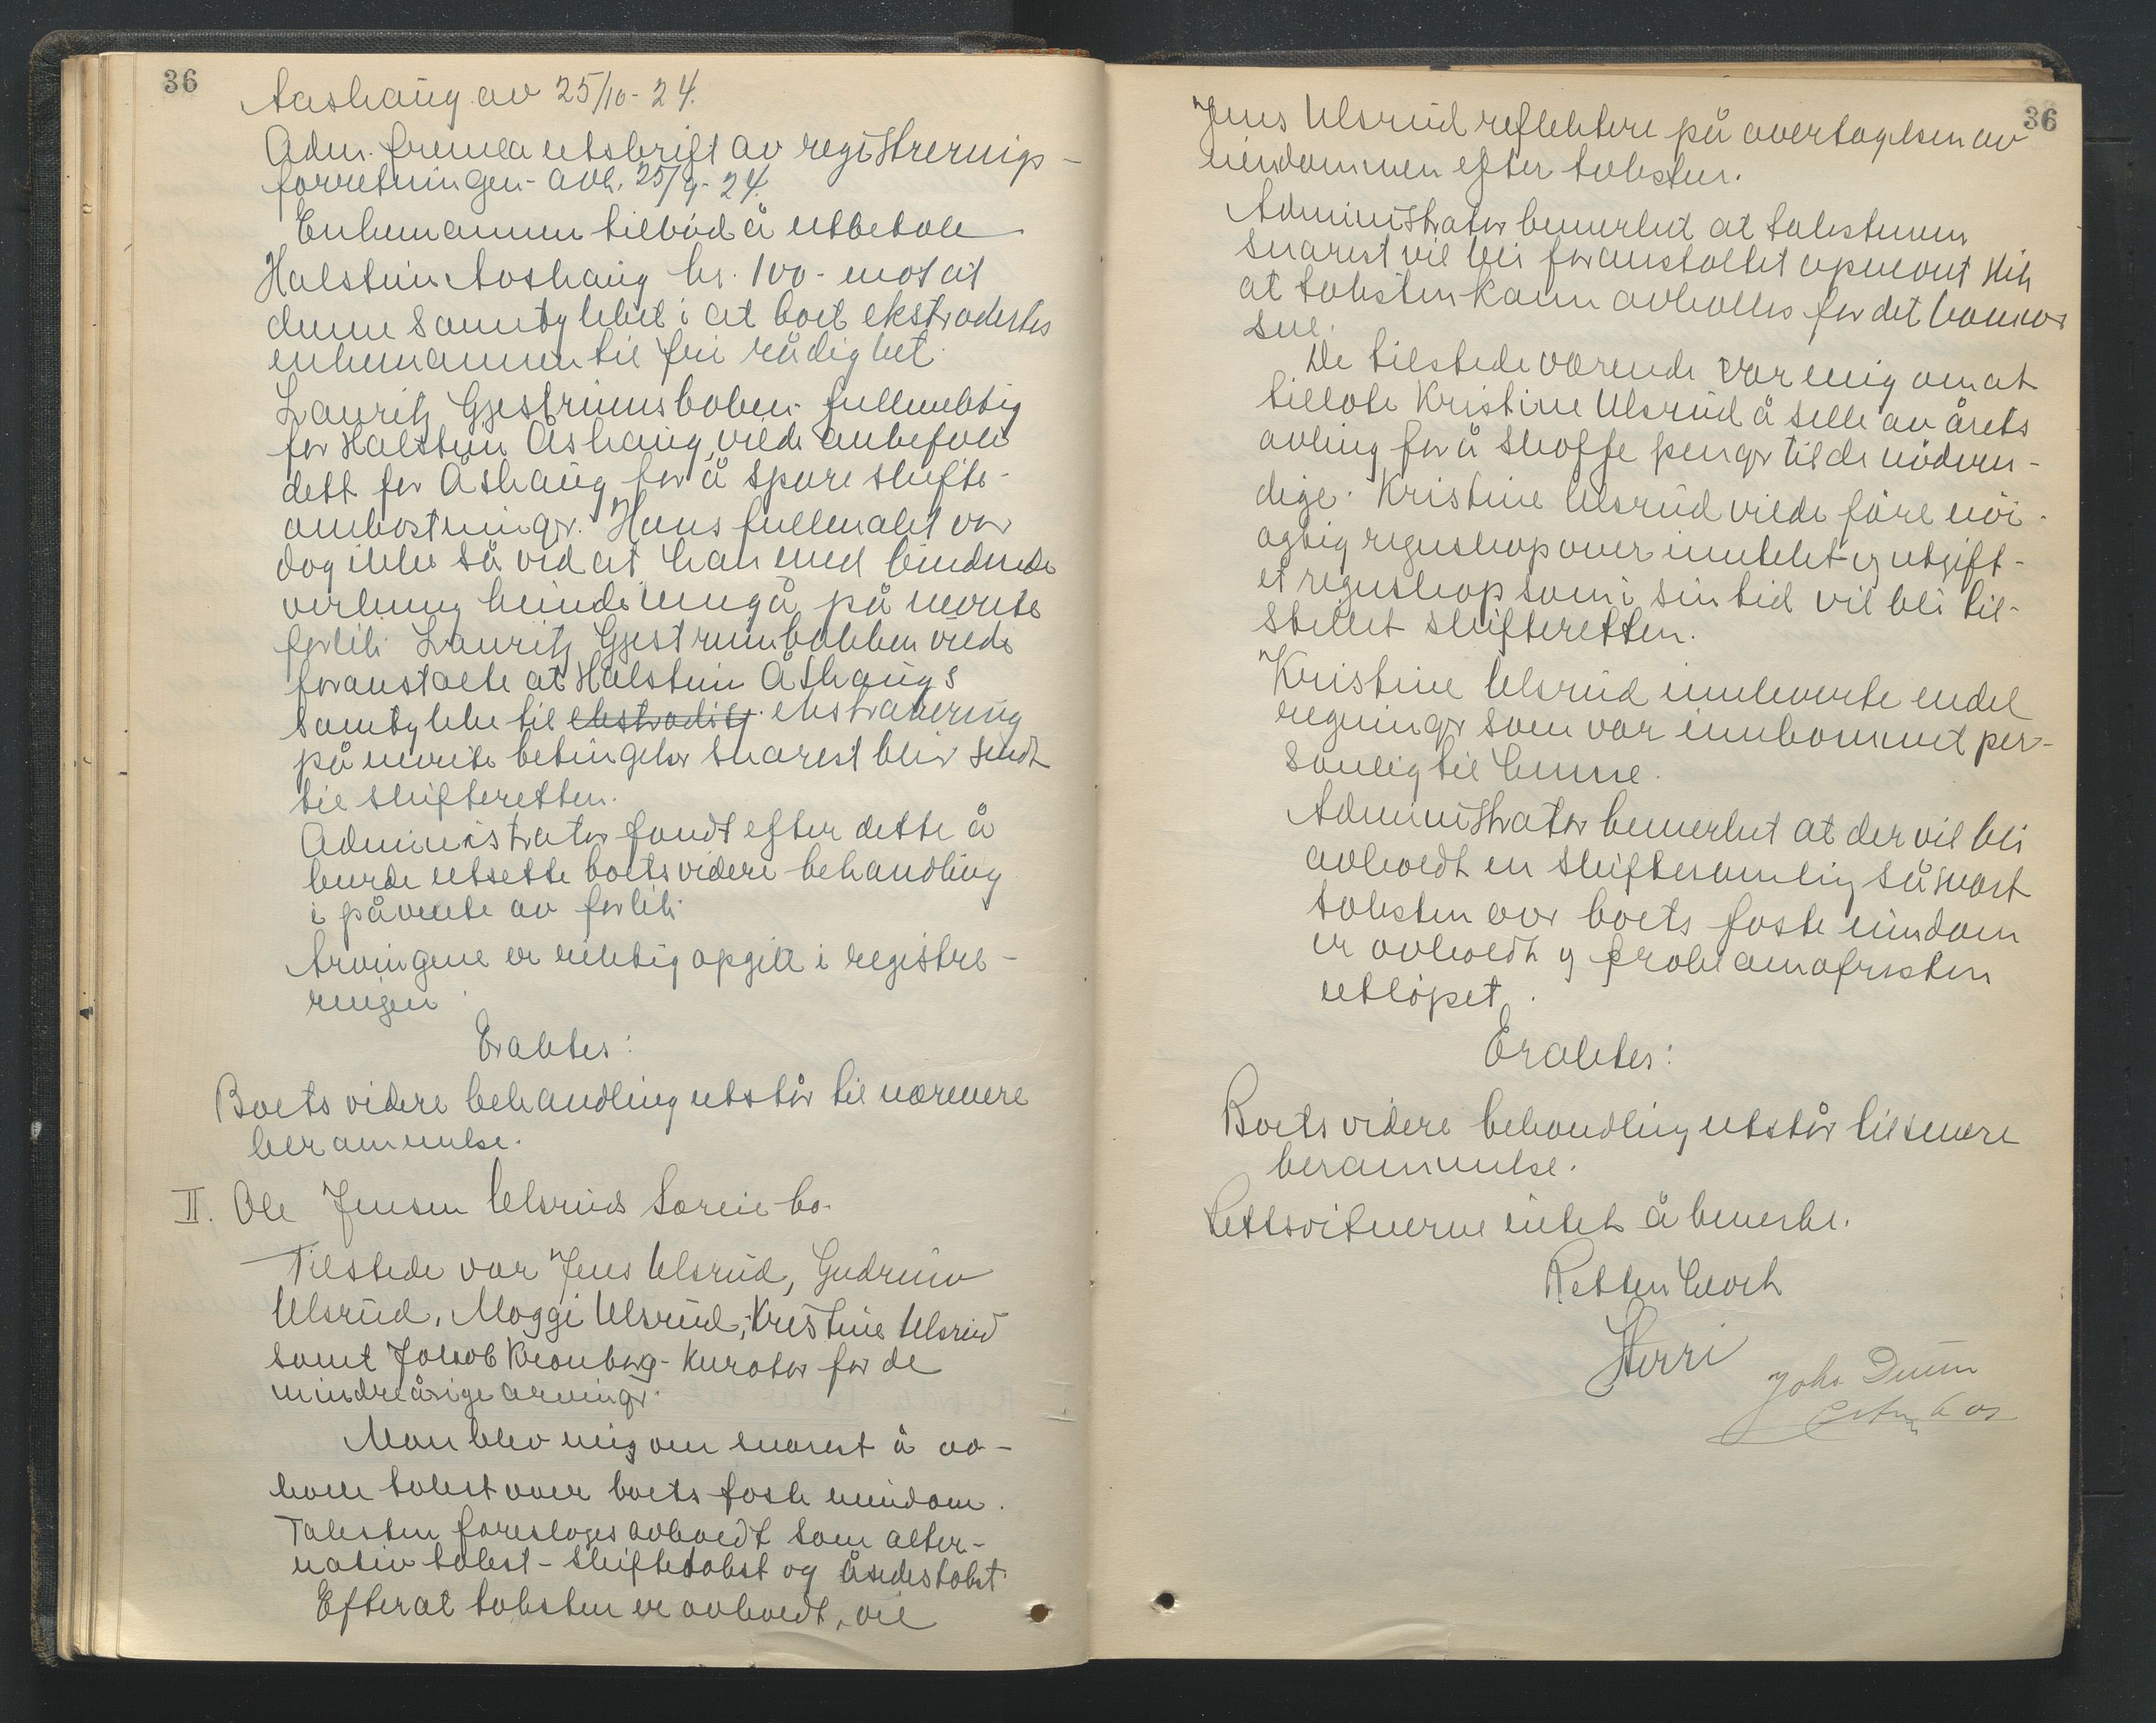 36
Aashaug av 25/10-24.
Adm. fremla utskrift av registrerings-
forretningen avh. 25/9-24.
Enkemannen tilbød å utbetale
Halstein Aashaug kr. 100- mot at
denne samtykket i at boet ekstradertes
enkemannen til fri rådighet.
Lauritz Gjestrumsbakken fullmektig
for Halstein Åshaug, vilde anbefale
dett for Åshaug for å spare skifte-
omkostninger. Hans fullmakt var
dog ikke så vid at han med bindende
virkning kunde inngå på nevnte
forlik. Lauritz Gjestrumbakken vilde
foranstalte at Halstein Åshaugs
samtykke til ekstradisj. ekstradering
på nevnte betingelser snarest blir sendt
til skifteretten.
Administrator fandt efter dette å
burde utsette boets videre behandling
i påvente av forlik.
Arvingene er riktig opgitt i registre-
ringen.
Eraktes:
Boets videre behandling utstår til nærmere
berammelse.
II. Ole Jensen Ulsruds særeie bo.
Tilstede var Jens Ulsrud, Gudrun
Ulsrud, Maggi Ulsrud, Kristine Ulsrud
samt Jakob Kronborg - kurator for de
mindreårige arvinger.
Man blev enig om snarest å av-
holde takst over boets faste eiendom.
Taksten foreslåes avholdt som alter-
nativ takst - skiftetakst og åsedestakst.
Efter at taksten er avholdt, vil
36
Jens Ulsrud reflektere på overtagelsen av
eiendommen efter taksten.
Administrator bemerket at takstmenn
snarest vil bli foranstaltet opnevnt slik
at taksten kann avholdes før det kommer
sne.
De tilstedeværende var enig om at
tillate Kristine Ulsrud å selle av årets
avling for å skaffe penger til de nödven-
dige. Kristine Ulsrud vilde føre nöi-
agtig regnskap over inntekt og utgift -
et regnskap som i sin tid vil bli til-
stillet skifteretten.
Kristine Ulsrud innleverte endel
regninger som var innkommet per-
sonlig til henne.
Administrator bemerket at der vil bli
avholdt en skiftesamling så snart
taksten over boets faste eiendom
er avholdt og proklamafristen
utløpet.
Eraktes:
Boets videre behandling utstår til senere
berammelse.
Rettsvitnerne intet å bemerke.
Retten hevet